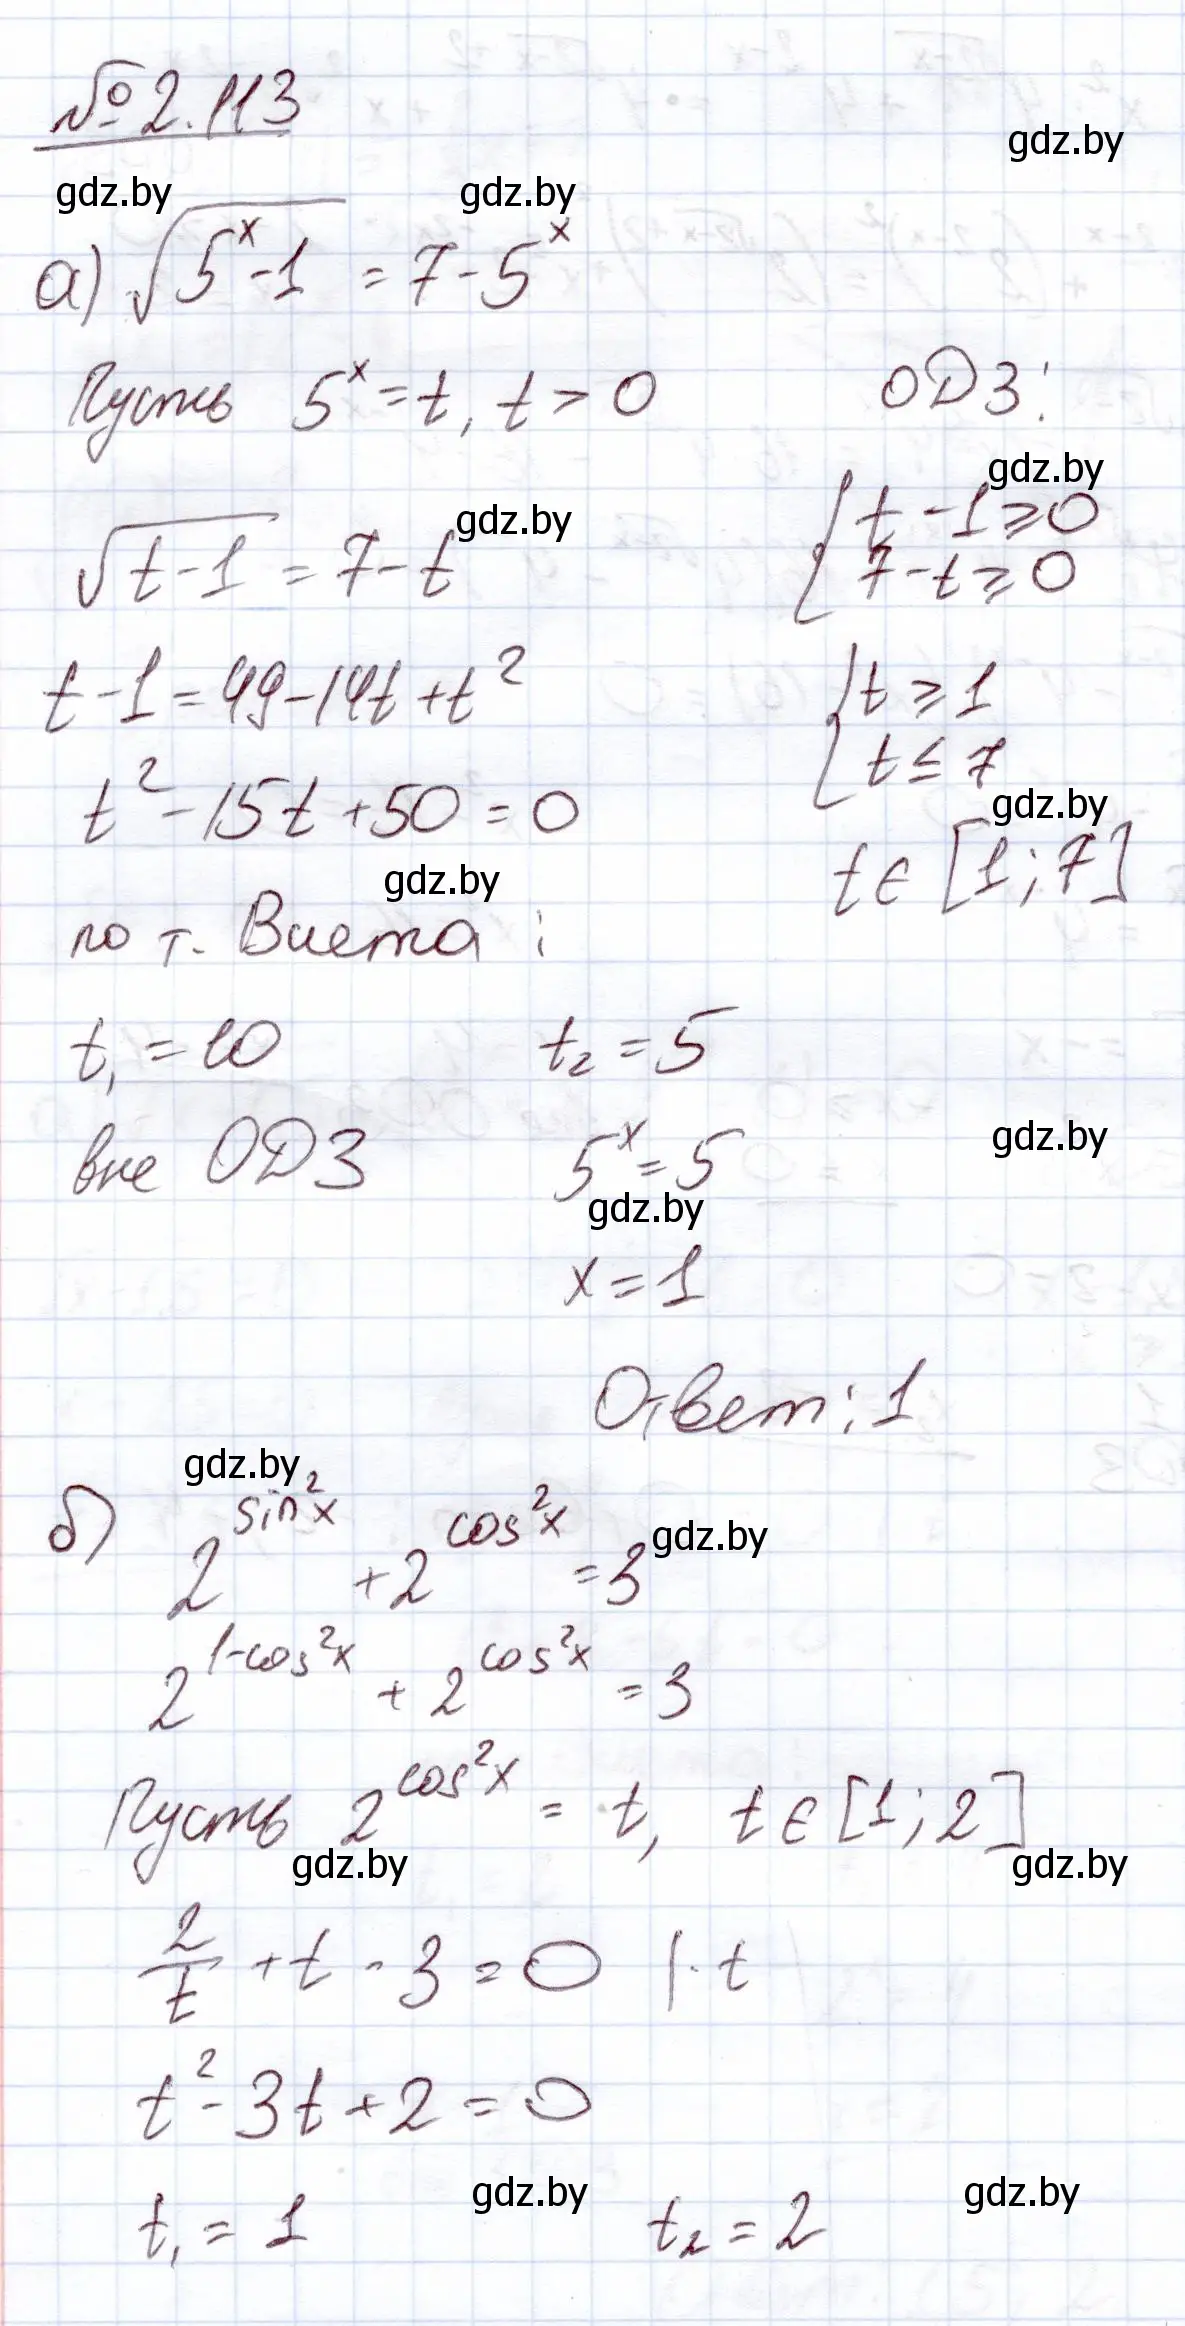 № 2.113
gdz.by
gdz.by gdz.by
а) √(5^x - 1) = 7 - 5^x
Пусть 5^x = t, t > 0 ОДЗ:
gdz.by
gdz.by
√(t - 1) = 7 - t { t - 1 ≥ 0
7 - t ≥ 0
t - 1 = 49 - 14t + t² { t ≥ 1
t ≤ 7
t² - 15t + 50 = 0
gdz.by
gdz.by t ∈ [1; 7]
по т. Виета:
t₁ = 10 t₂ = 5
вне ОДЗ 5^x = 5
gdz.by
gdz.by
x = 1
Ответ: 1
gdz.by
б) 2^(sin²x) + 2^(cos²x) = 3
gdz.by
2^(1-cos²x) + 2^(cos²x) = 3
Пусть 2^(cos²x) = t, t ∈ [1; 2]
gdz.by gdz.by
2/t + t - 3 = 0 | · t
t² - 3t + 2 = 0
gdz.by gdz.by
t₁ = 1 t₂ = 2